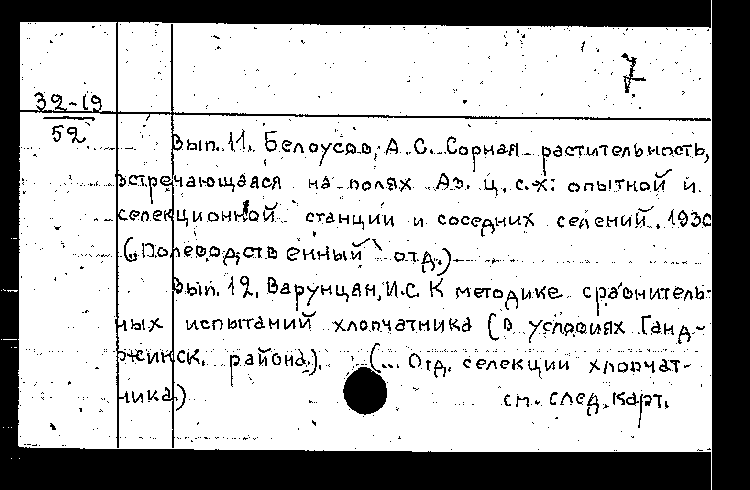 7
32-19
52
Вып. 11. Белоусов, А. С. Сорная растительность,
встречающаяся на полях Аз. ц. с.х. опытной и
селекционной станции и соседних селений. 1930
(„Полеводственный отд.)
Вып. 12. Варунцян, И.С. К методике сравнитель-
ных испытаний хлопчатника (в условиях Ганд-
жинск. района). (... Отд. селекции хлопчат-
ника.)
см. след. карт.